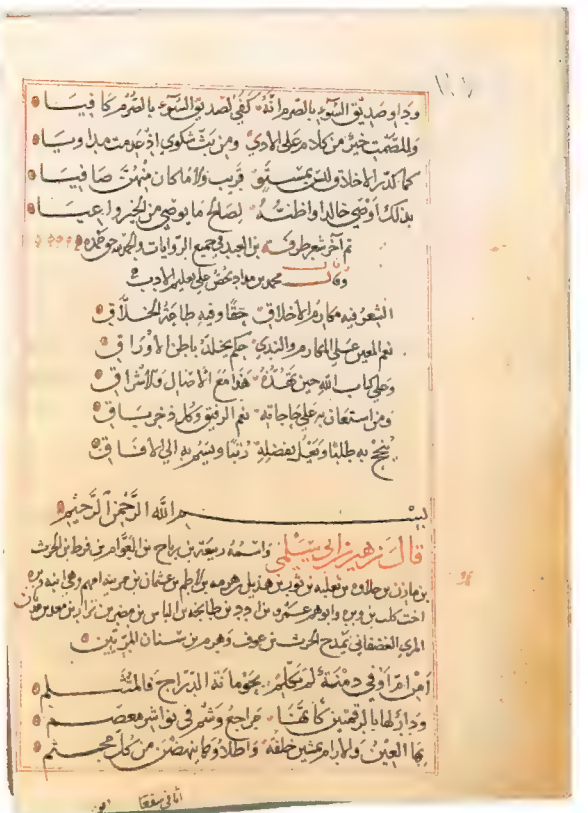 وداو صديق السوء بالصرم انه كفى لصديق السوء بالصرم كافيا
وللصمت خير من كلام على الاذى ومن بث شكوى اذ عدمت مداويا
كما كدر الاخلاق قريب ولاماكان منهن صافيا
بذلك اوصى خالدا واظنه لصالح ما يوصى من الخير واعيا
تم آخر شعر طرفة بن العبد في جميع الروايات والحمد لله حق حمده
وقال محمد بن مواد يحض على تعليم الادب
الشعر فيه مكارم الاخلاق حقا وفيه طاجة الخلاق
نعم المعين على المكارم والندى حكم يخلد باطن الاوراق
وعلى كتاب الله حين تهذه هذا مع الاصال والاشراق
ومن استعان به على حاجاته نعم الرفيق وكل ذخر باق
ينجح به طلبا وتعل بفضله رتبا ويسم به الى الافاق
بسم الله الرحمن الرحيم
قال زهير بن ابي سلمى واسمه ربيعة بن رياح بن العوام بن قرط بن الحرث
بن مازن بن حلاوه بن ثعلبه بن ثور بن هذيل بن هرمه بن لاطم بن عثمان بن مزينة امهم وهي ابنة وبره
اخت كلب بن وبره وابوهم عمرو بن ادد بن طابخة بن الياس بن مضر بن نزار بن معد بن عدنان
المري الغطفاني يمدح الحرث بن عوف وهرم بن سنان المريين
امن ام اوفى دمنة لم تكلم بحومانة الدراج فالمتثلم
ودار لها بالرقمتين كانها مراجع وشم في نواشر معصم
بها العين والارام يمشين خلفه واطلاوها ينهضن من كل مجثم
اثافي سفعا